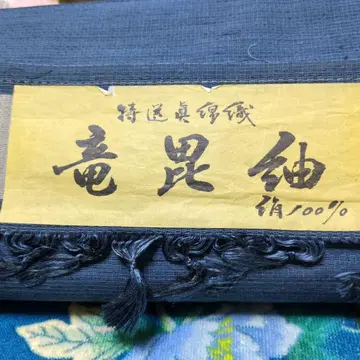 特選真綿織
竜毘紬
絹100%